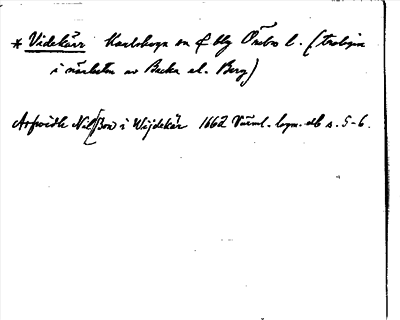 * Videkärr Karlskoga sn f bg Örebro l. (troligen
i närheten av Backa el. Berg)
Arfwidh Nil[s]son i Wijdekär 1662 Värml. lagm. db s. 5-6.